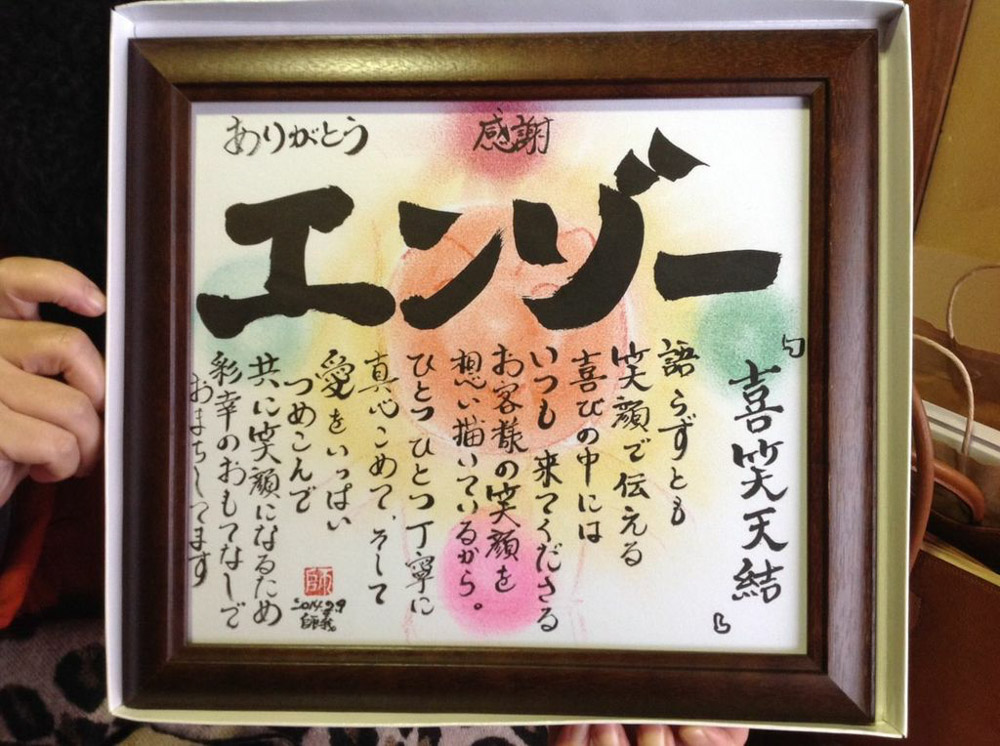 ありがとう
感謝
エンゾー
「喜笑天結」
語らずとも
笑顔で伝える
喜びの中には
いつも来てくださる
お客様の笑顔を
想い描いているから。
ひとつひとつ丁寧に
真心こめて、そして
愛をいっぱい
つめこんで
共に笑顔になるため
彩幸のおもてなしで
おまちしてます
2014.2.9